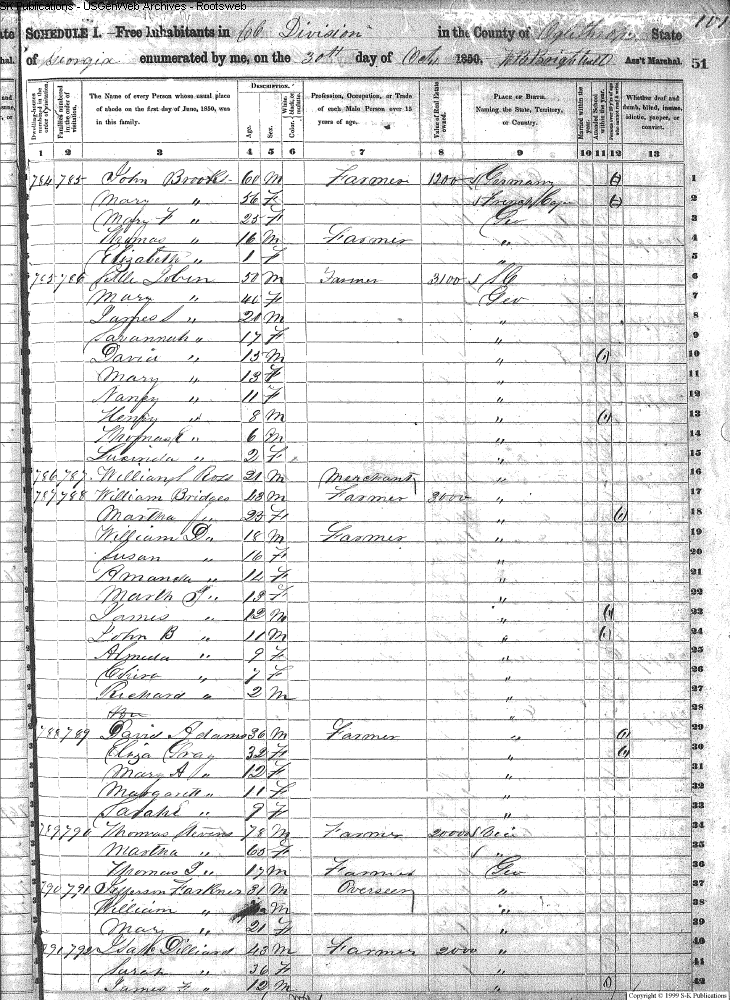 S-K Publications - USGenWeb Archives - Rootsweb
101
SCHEDULE I.—Free Inhabitants in 66 Division in the County of Oglethorpe State
of Georgia enumerated by me, on the 30th day of Oct 1850. Ass't Marshal. 51
Dwelling-houses numbered in the order of visitation. Families numbered in the order of visitation. The Name of every Person whose usual place of abode on the first day of June, 1850, was in this family. DESCRIPTION. Age. Sex. Color. White, black, or mulatto. Profession, Occupation, or Trade of each Male Person over 15 years of age. Value of Real Estate owned. PLACE OF BIRTH. Naming the State, Territory, or Country. Married within the year. Attended School within the year. Whether deaf and dumb, blind, insane, idiotic, pauper, or convict.
1 2 3 4 5 6 7 8 9 10 11 12 13
784 785 John Brooks 60 M Farmer 1200 Germany 1
Mary " 56 F 2
Mary F " 25 F Geo 3
Thomas " 16 M Farmer " 4
Elizabeth " 1 F " 5
785 786 50 M Farmer 3100 S C 6
Mary " 40 F Geo 7
James S " 21 M " 8
Savannah " 17 F " 9
David " 15 M " 10
Mary " 13 F " 11
Nancy " 11 F " 12
Henry " 8 M " 13
Thomas E " 6 M " 14
Lucinda " 2 F " 15
786 787 William S Ross 21 M Merchant " 16
787 788 William Bridges 43 M Farmer 3000 " 17
Martha " 23 F " 18
William D " 18 M Farmer " 19
Susan " 16 F " 20
Amanda " 14 F " 21
Marth J " 13 F " 22
James " 12 M " 23
John B " 11 M " 24
Almeda " 9 F " 25
" 7 F " 26
Richard " 2 M " 27
" 28
788 789 David Adams 36 M Farmer " 29
Eliza Gray 32 F " 30
Mary A " 12 F " 31
Margarett " 11 F " 32
Sarah E " 9 F " 33
789 790 Thomas Stevens 78 M Farmer 20000 34
Martha " 65 F " 35
Thomas J " 17 M Farmer Geo 36
790 791 Jefferson Faskner 31 M Overseer " 37
William " M " 38
Mary " 21 F " 39
791 792 Isaac Dilliard 43 M Farmer 2000 " 40
Sarah " 36 F " 41
James F " 12 M " 42
Copyright © 1999 S-K Publications